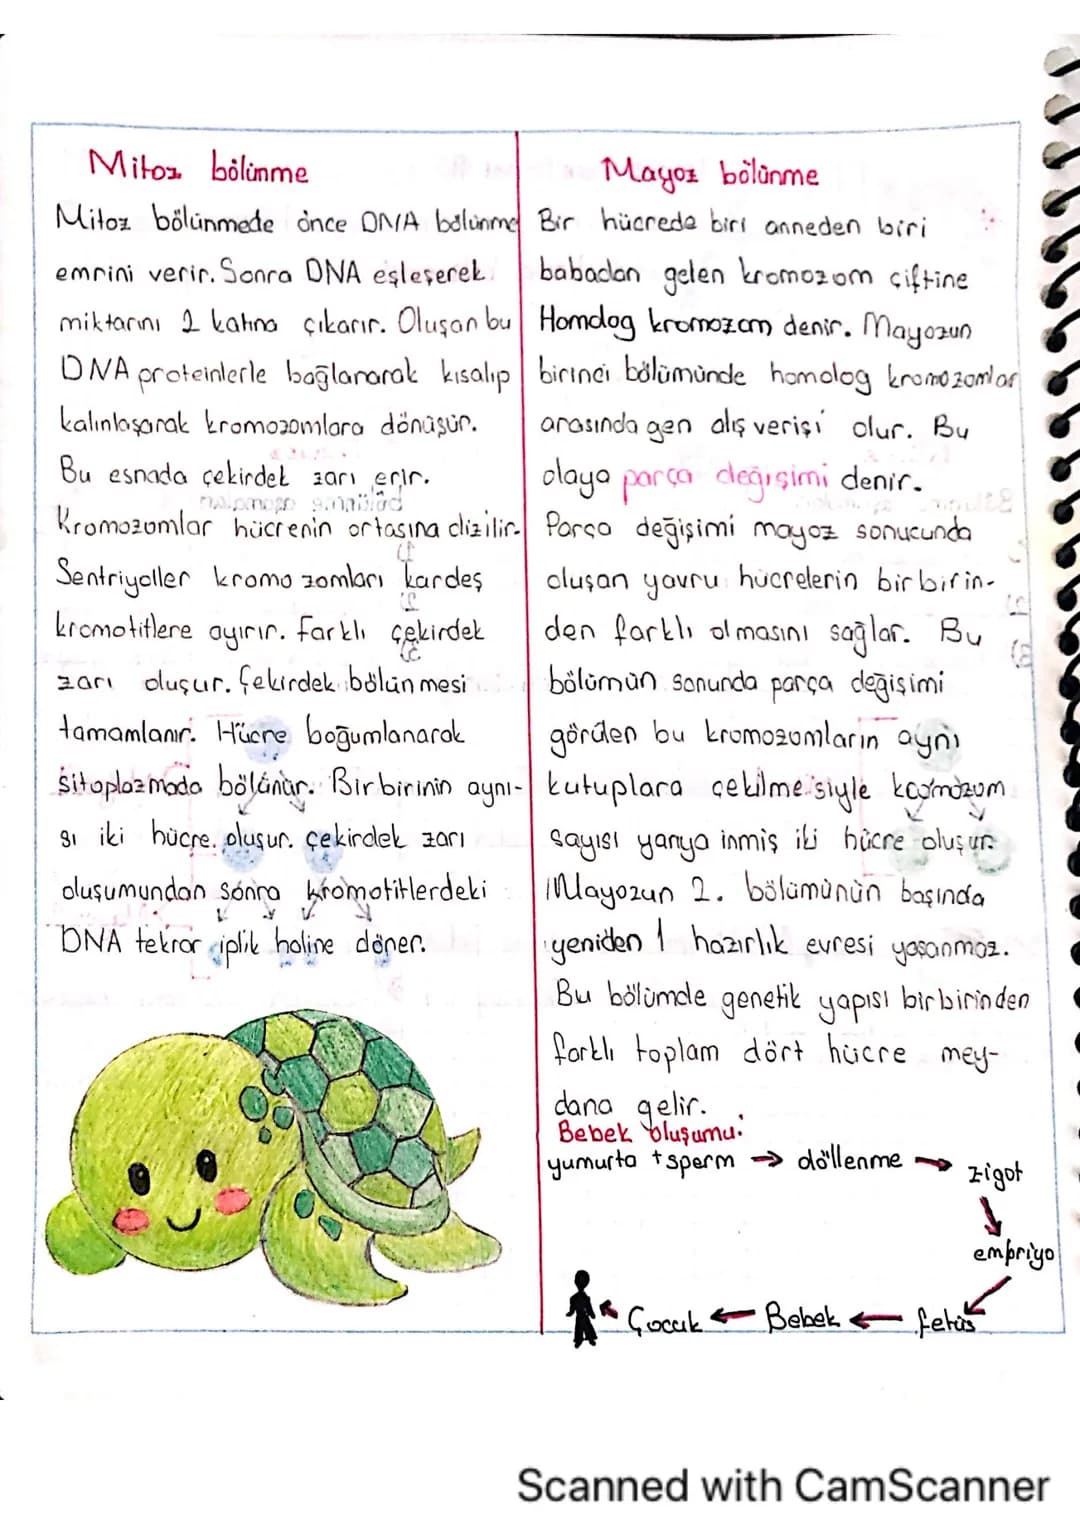 Mitoz bölünme
Mitoz bölünmede önce DNA bölünme
emrini verir. Sonra DNA eşleşerek
miktarını 2 katına çıkarır. Oluşan bu
DNA proteinlerle bağlanarak kısalıp
kalınlaşarak kromozomlara dönüşür.
Bu esnada çekirdek zarı erir.
Kromozomlar hücrenin ortasına dizilir.
Sentriyoller kromozomları kardeş
kromotitlere ayırır. Farklı çekirdek
zarı oluşur. Çekirdek bölünmesi
tamamlanır. Hücre boğumlanarak
sitoplazmada bölünür. Birbirinin aynı-
sı iki hücre oluşur. çekirdek zarı
oluşumundan sonra kromotitlerdeki
DNA tekrar iplik haline döner.
Mayoz bölünme
Bir hücrede biri anneden biri
babadan gelen kromozom çiftine
Homolog kromozom denir. Mayozun
birinci bölümünde homolog kromozomlar
arasında gen alış verişi olur. Bu
olaya parça değişimi denir.
Parça değişimi mayoz sonucunda
oluşan yavru hücrelerin birbirin-
den farklı olmasını sağlar. Bu
bölümün sonunda parça değişimi
görülen bu kromozomların aynı
kutuplara çekilmesiyle kromozom
sayısı yarıya inmiş iki hücre oluşur.
Mayozun 2. bölümünün başında
yeniden 1 hazırlık evresi yaşanmaz.
Bu bölümde genetik yapısı birbirinden
farklı toplam dört hücre mey-
dana gelir.
Bebek oluşumu:
yumurta + sperm → döllenme → zigot
empriyo
Çocuk ← Bebek ← fetüs
Scanned with CamScanner